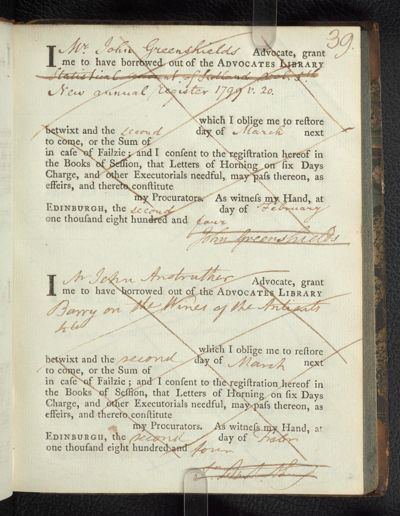 39.
I Mr. John Greenshields Advocate, grant
me to have borrowed out of the ADVOCATES LIBRARY
Statistical account of Scotland vol.
New annual register 1799 v. 20.
which I oblige me to reſtore
betwixt and the second day of March next
to come, or the Sum of
in caſe of Failzie; and I conſent to the regiſtration hereof in
the Books of Seſſion, that Letters of Horning on ſix Days
Charge, and other Executorials needful, may paſs thereon, as
effeirs, and thereto conſtitute
my Procurators. As witneſs my Hand, at
EDINBURGH, the second day of February
one thouſand eight hundred and four
John Greenshields
I Mr John Anstruther Advocate, grant
me to have borrowed out of the ADVOCATES LIBRARY
Barry on the Wines of the Antients
4to
which I oblige me to reſtore
betwixt and the second day of March next
to come, or the Sum of
in caſe of Failzie; and I conſent to the regiſtration hereof in
the Books of Seſſion, that Letters of Horning on ſix Days
Charge, and other Executorials needful, may paſs thereon, as
effeirs, and thereto conſtitute
my Procurators. As witneſs my Hand, at
EDINBURGH, the second day of
one thouſand eight hundred and four